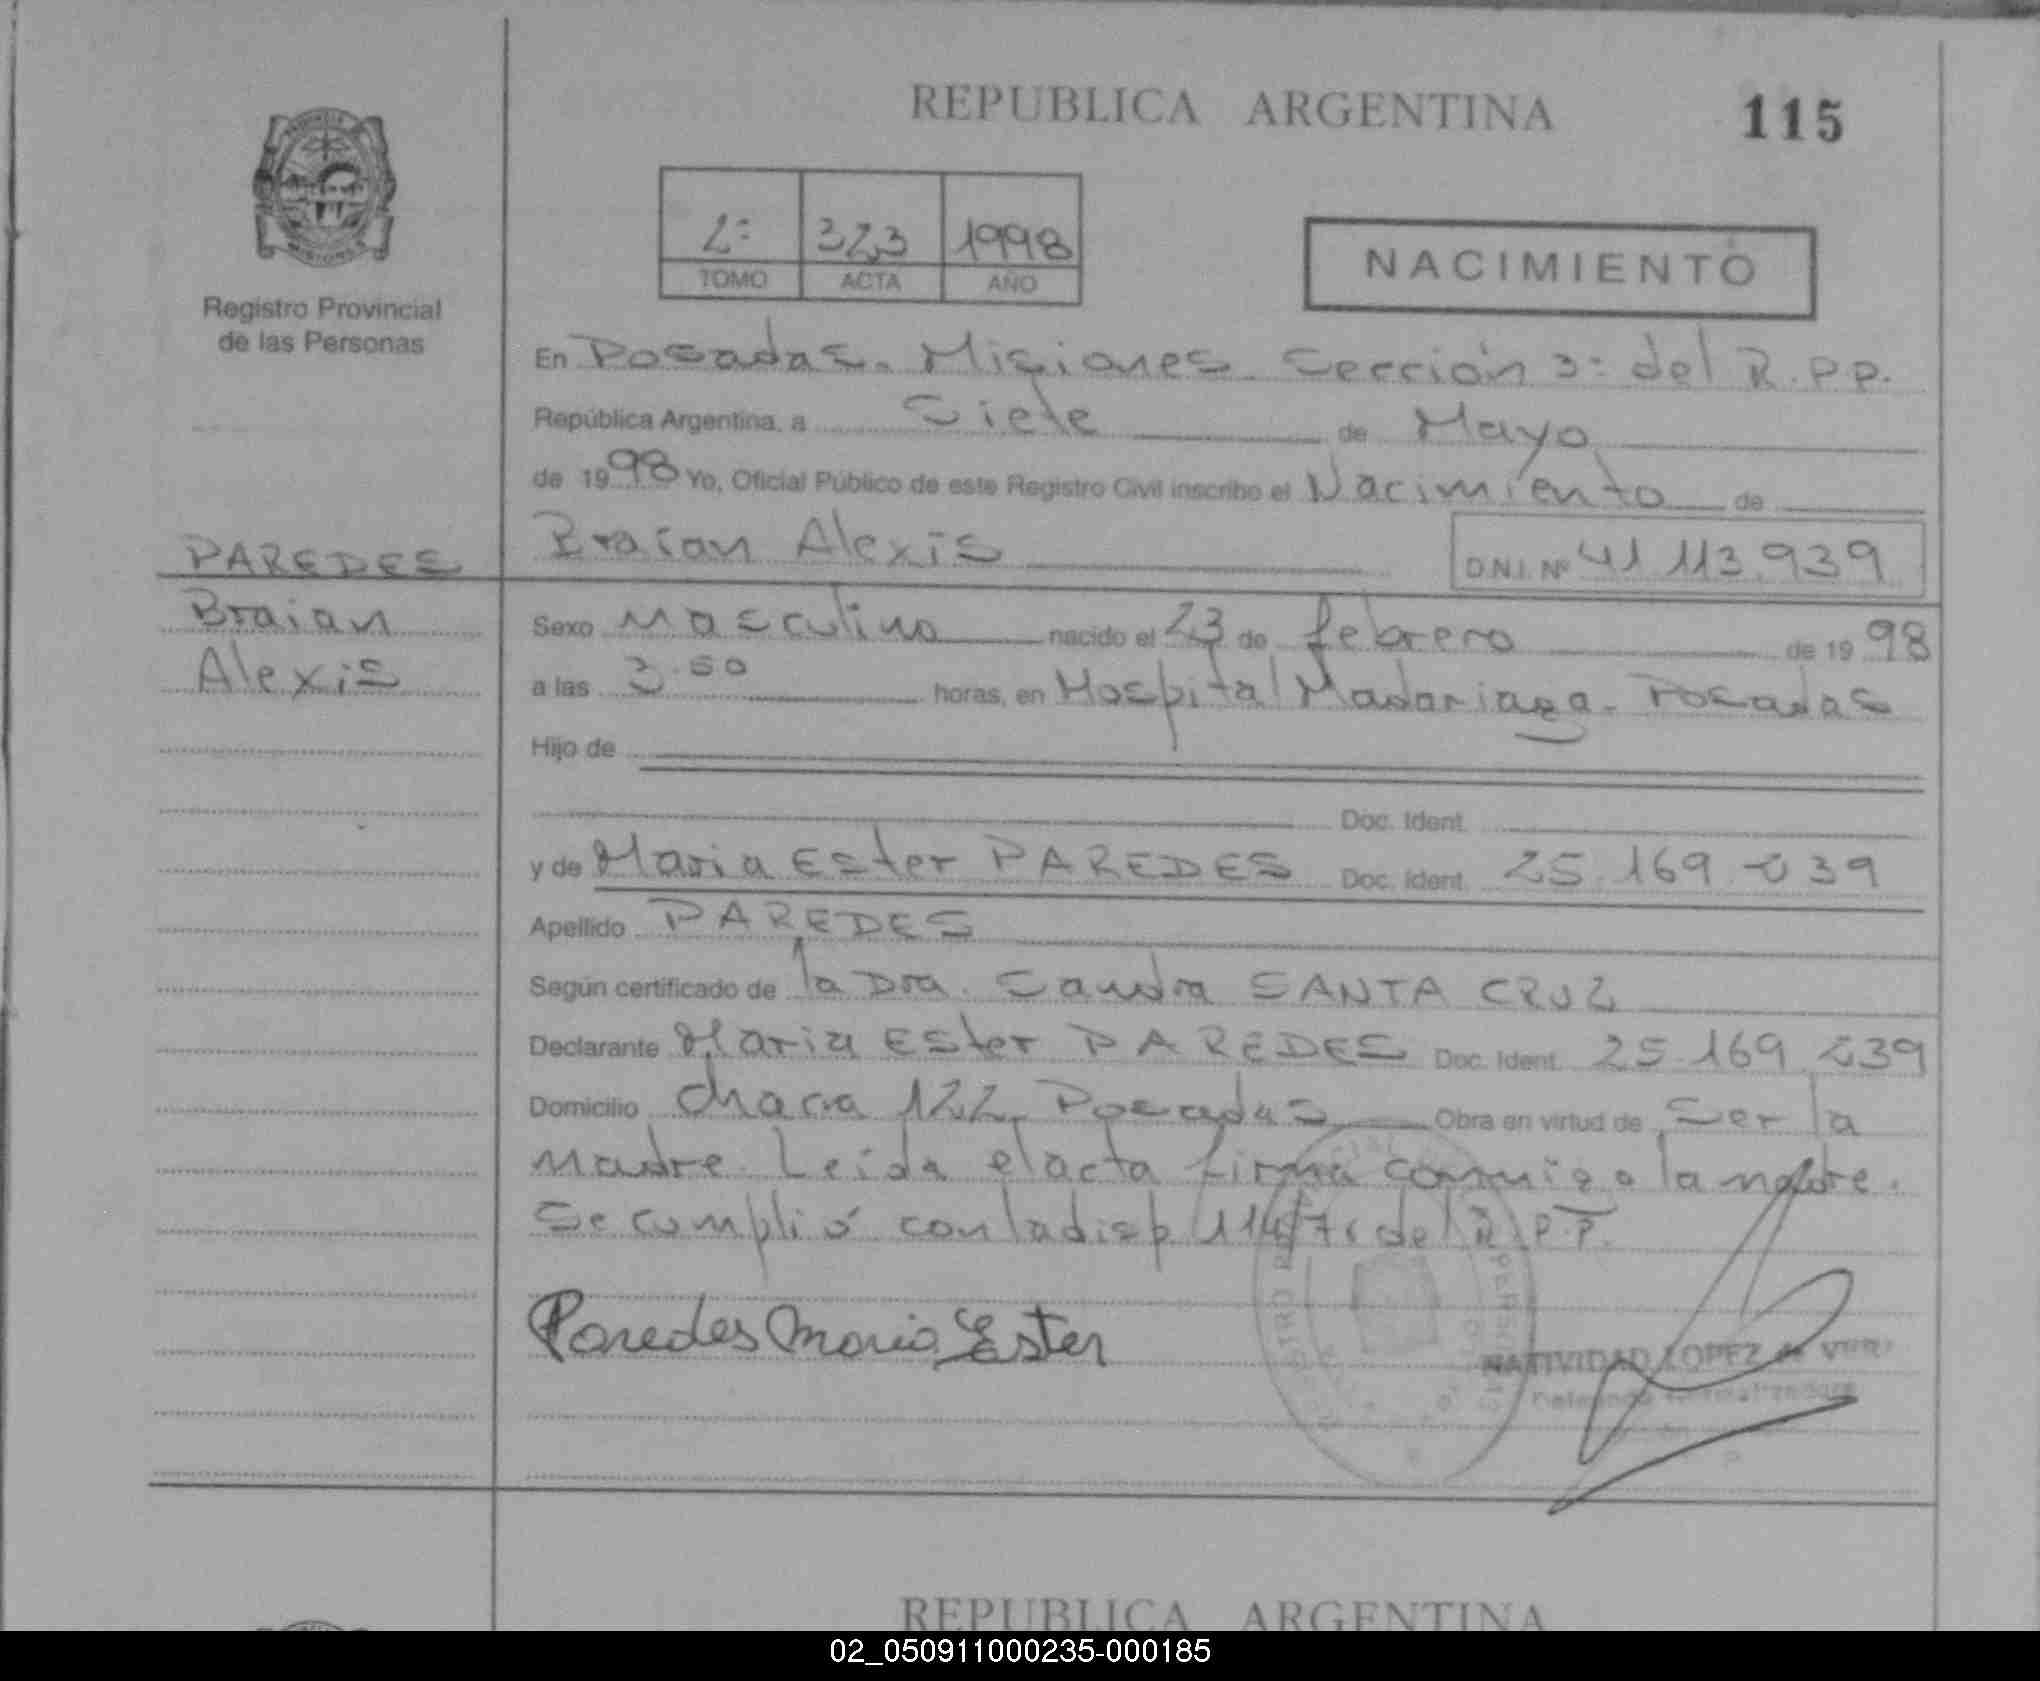 REPUBLICA ARGENTINA
115
2º 323 1998
TOMO ACTA AÑO
NACIMIENTO
Registro Provincial
de las Personas
En Posadas. Misiones. Sección 3º del R.P.P.
República Argentina, a Siete de Mayo
de 1998 Yo, Oficial Público de este Registro Civil inscribo el Nacimiento de
PAREDES
Braian Alexis D.N.I. Nº 41 113.939
Braian
Alexis
Sexo Masculino nacido el 23 de febrero de 1998
a las 3.50 horas, en Hospital Madariaga. Posadas
Hijo de
Doc. Ident.
y de Maria Ester PAREDES Doc. Ident. 25.169. 39
Apellido PAREDES
Según certificado de la Dra. Sandra SANTA CRUZ
Declarante Maria Ester PAREDES Doc. Ident. 25.169. 39
Domicilio Chacra 122 Posadas Obra en virtud de Ser la
Madre. Leída el acta firma conmigo la madre.
Se cumplió con la disp 114/76 del R.P.P.
Paredes Maria Ester
NATIVIDAD LOPEZ de
REPUBLICA ARGENTINA
02_050911000235-000185